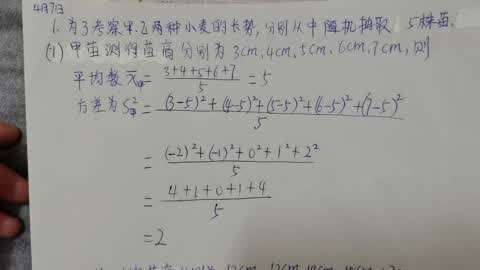 4月7日
1. 为了考察甲、乙两种小麦的长势,分别从中随机抽取 5株苗.
(1) 甲苗测得苗高分别为3cm,4cm,5cm,6cm,7cm,则
平均数 x̄甲 = (3+4+5+6+7)/5 = 5
方差为 S²甲 = ((3-5)²+(4-5)²+(5-5)²+(6-5)²+(7-5)²)/5
= ((-2)²+(-1)²+0²+1²+2²)/5
= (4+1+0+1+4)/5
=2